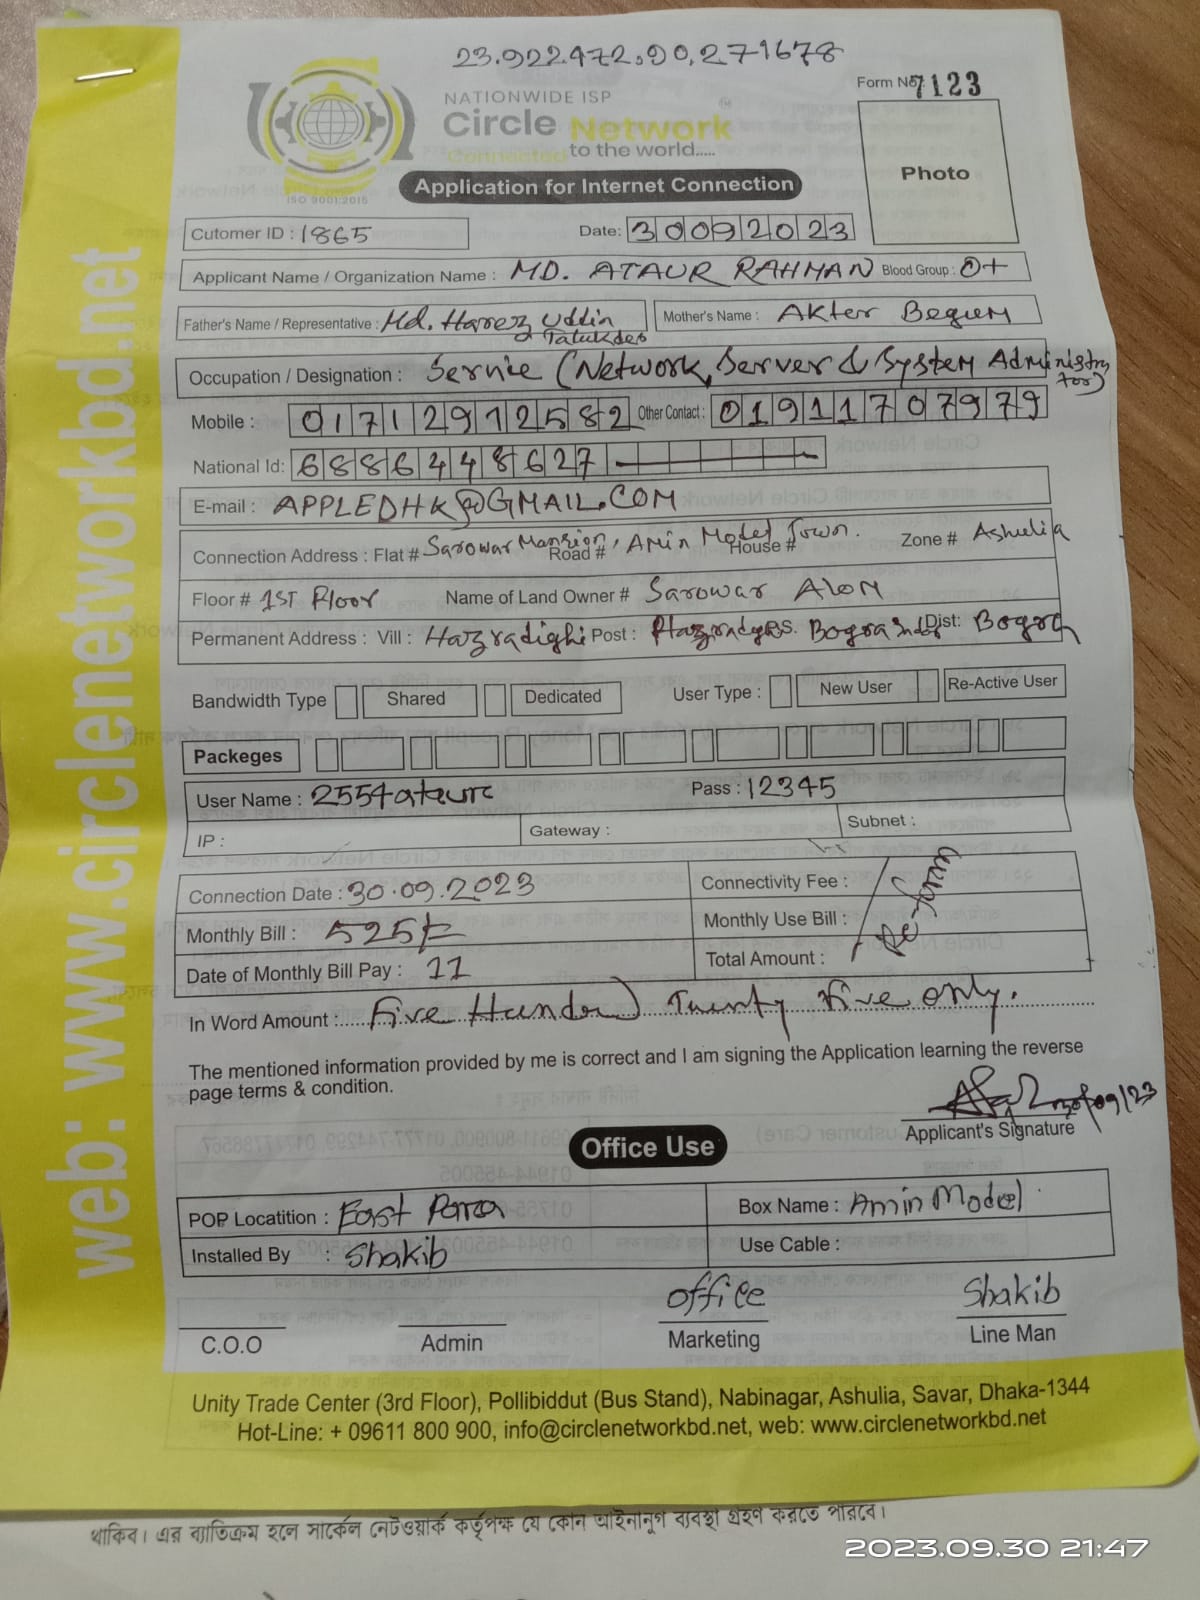 23.922472,90,271678
Form No 7123
NATIONWIDE ISP
Circle Network
Connected to the world.....
ISO 9001:2015
Application for Internet Connection
Photo
Cutomer ID : 1865 Date: 30092023
Applicant Name / Organization Name : MD. ATAUR RAHMAN Blood Group : O+
Father's Name / Representative : Md. Harez Uddin Talukder Mother's Name : AKter Begum
Occupation / Designation : Service (Network, Server & System Administrator)
Mobile : 01712972582 Other Contact : 01911707979
National Id: 6886448627
E-mail : APPLEDHK@GMAIL.COM
Connection Address : Flat # Sarowar Mansion, Road # Amin Model Town. House # Zone # Ashulia
Floor # 1ST Floor Name of Land Owner # Sarowar Alom
Permanent Address : Vill : Hazradighi Post : P.S. Bogra Dist: Bogra
Bandwidth Type Shared Dedicated User Type : New User Re-Active User
Packeges
User Name : Pass : 12345
IP : Gateway : Subnet :
Connection Date : 30.09.2023 Connectivity Fee :
Monthly Bill : 525/= Monthly Use Bill :
Date of Monthly Bill Pay : 11 Total Amount :
In Word Amount : Five Hundred Twenty Five only.
The mentioned information provided by me is correct and I am signing the Application learning the reverse
page terms & condition.
30/09/23
Applicant's Signature
Office Use
POP Locatition : East Para Box Name : Amin Model
Installed By : Shakib Use Cable :
office Shakib
C.O.O Admin Marketing Line Man
Unity Trade Center (3rd Floor), Pollibiddut (Bus Stand), Nabinagar, Ashulia, Savar, Dhaka-1344
Hot-Line: + 09611 800 900, info@circlenetworkbd.net, web: www.circlenetworkbd.net
web: www.circlenetworkbd.net
থাকিব। এর ব্যতিক্রম হলে সার্কেল নেটওয়ার্ক কর্তৃপক্ষ যে কোন আইনানুগ ব্যবস্থা গ্রহণ করতে পারবে।
2023.09.30 21:47